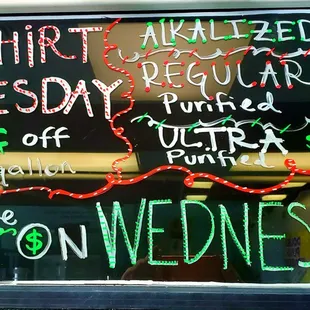 SHIRT
TUESDAY
off
gallon
ALKALIZED
REGULAR
Purified
ULTRA
Purified
$ ON WEDNES